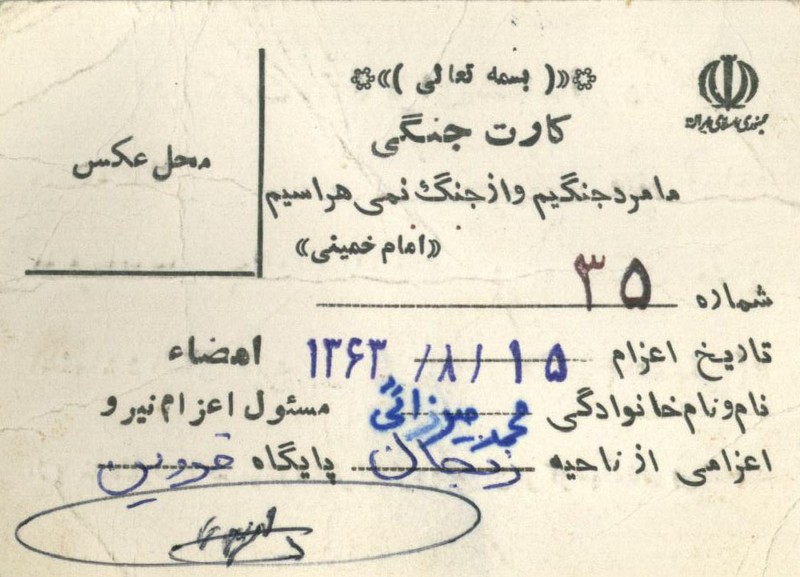 جمهوری اسلامی ایران
«( بسمه تعالی )»
کارت جنگی
محل عکس
ما مرد جنگیم و از جنگ نمی هراسیم
«امام خمینی»
شماره ۳۵
تاریخ اعزام ۱۵/۸/۱۳۶۳ امضاء
نام و نام خانوادگی محمد میرزائی مسئول اعزام نیرو
اعزامی از ناحیه زنجان پایگاه قزوین